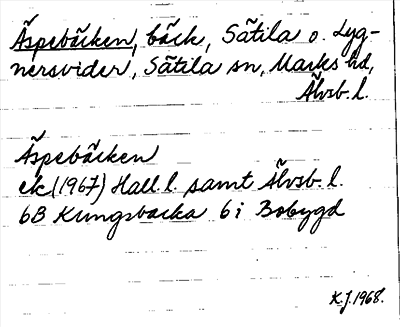 Äspebäcken, bäck, Sätila o. Lyg-
nersvider, Sätila sn, Marks hd,
Älvsb. l.
Äspebäcken
ek (1967) Hall. l. samt Älvsb. l.
6B Kungsbacka 6i Bobygd
K.J. 1968.